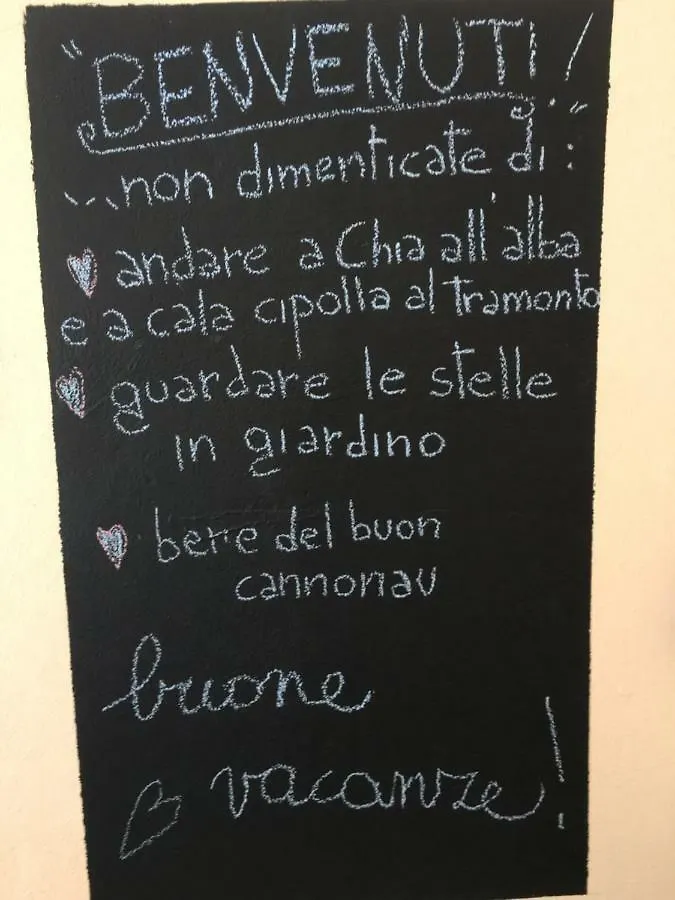 "BENVENUTI!"
...non dimenticate di:
andare a Chia all'alba
e a cala cipolla al tramonto
guardare le stelle
in giardino
bere del buon
cannonau
buone
vacanze!